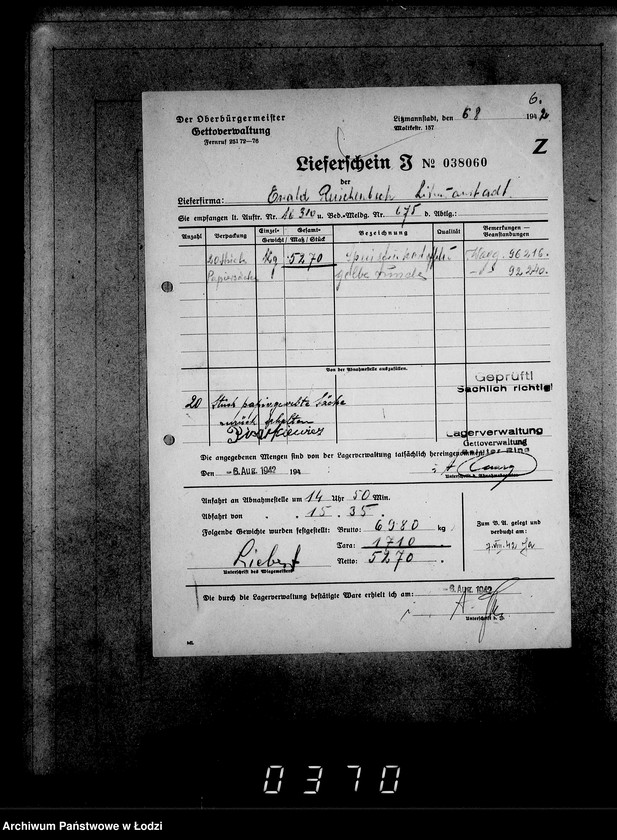 6.
Der Oberbürgermeister
Gettoverwaltung
Fernruf 251 72—76
Litzmannstadt, den 6 8 194 2
Moltkestr. 157
Z
Lieferschein J № 038060
der
Lieferfirma: Litzmannstadt.
Sie empfangen lt. Auftr. Nr. 16 310 u. Bed.-Meldg. Nr. 675 d. Abtlg.:
Anzahl Verpackung Einzel-Gewicht Gesamt-Maß/Stück Bezeichnung Qualität Bemerkungen - Beanstandungen
20 Stück Kg 5270 96216.
Papiersäcke gelbe 92240.
Von der Abnahmestelle auszufüllen.
Geprüft!
Sachlich richtig!
20 Stück Säcke
zurück erhalten
Lagerverwaltung
Gettoverwaltung
Die angegebenen Mengen sind von der Lagerverwaltung tatsächlich hereingenommen.
Den -6. Aug. 1942 194
Anfahrt an Abnahmestelle um 14 Uhr 50 Min.
Abfahrt von 15 . 35 .
Folgende Gewichte wurden festgestellt: Brutto: 6980 kg
Tara: 1710 .
Netto: 5270 .
Liebert
Unterschrift des Wiegemeisters
Zum B. A. gelegt und
verbucht am:
7.VIII.42
Die durch die Lagerverwaltung bestätigte Ware erhielt ich am: -6. Aug. 1942
0370
Archiwum Państwowe w Łodzi